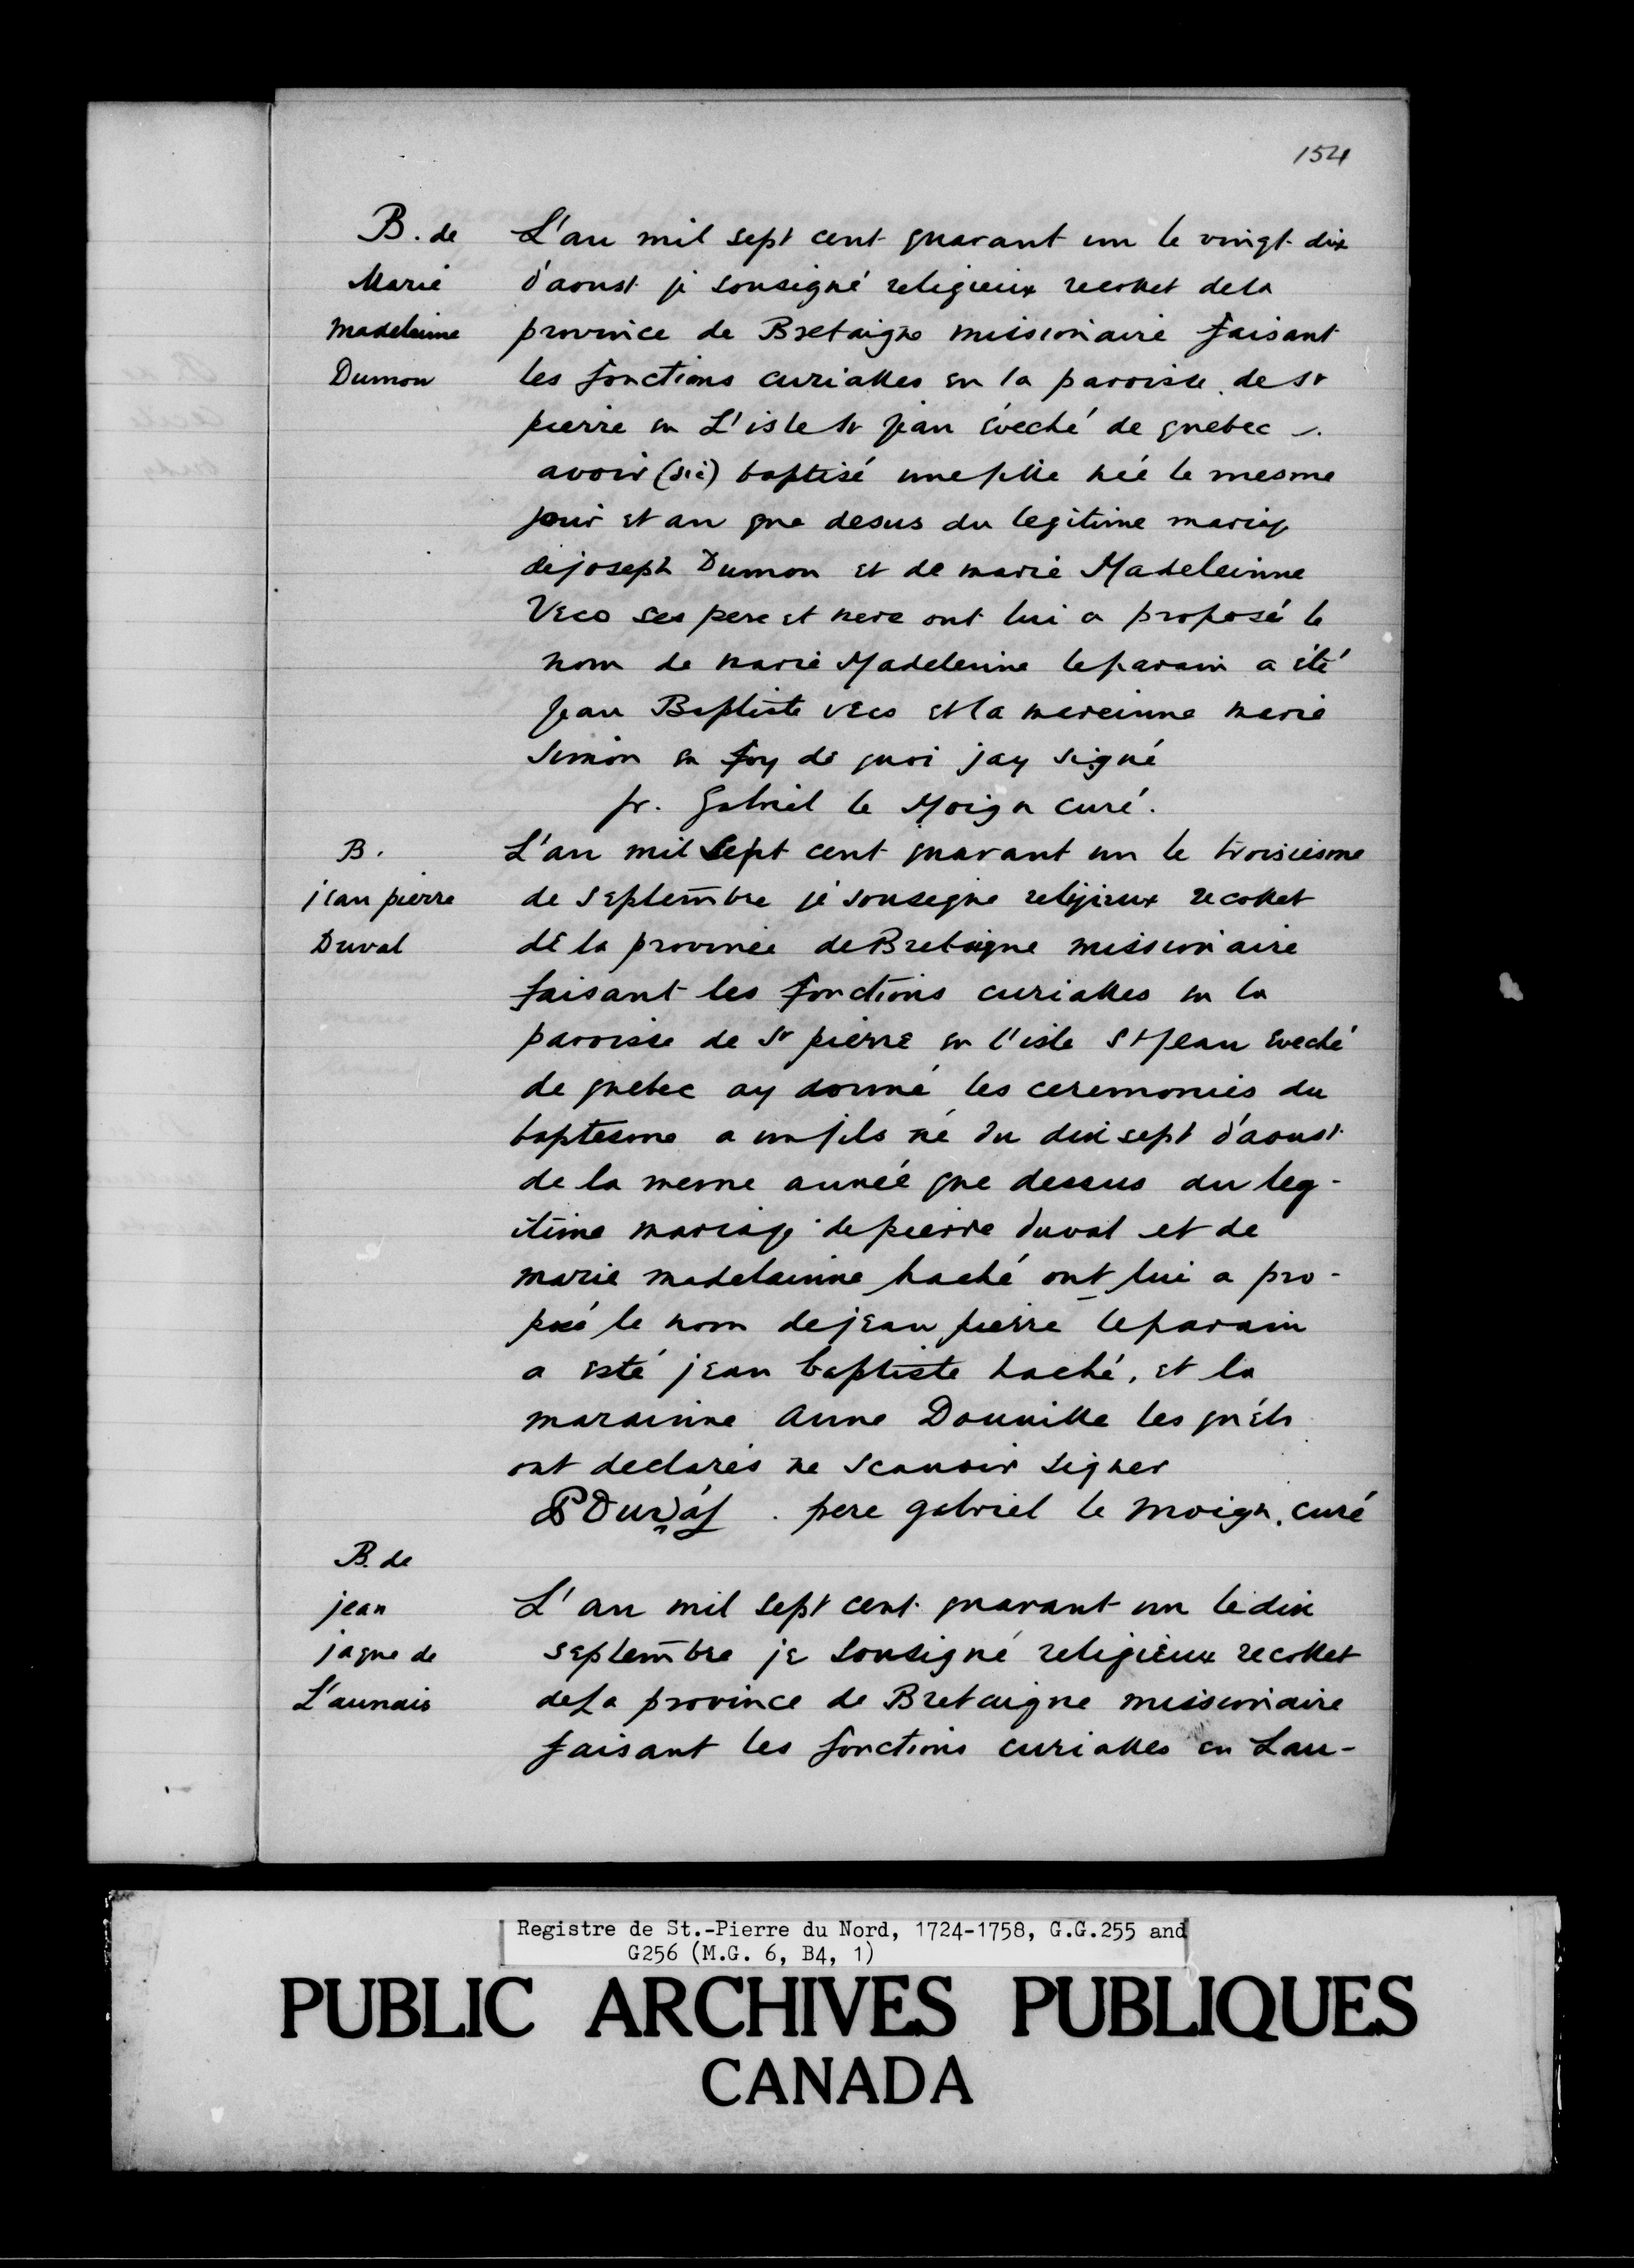 154
B. de
Marie
Madeleinne
Dumon
L'an mil sept cent quarant un le vingt dix
d'aoust je sousigné religieux recollet dela
province de Bretaigne missionaire faisant
les fonctions curialles en la paroisse de St
pierre en L'isle St jean éveché de quebec
avoir (sic) baptisé une fille née le mesme
jour et an que desus du legitime mariage
de joseph Dumon et de marie Madeleinne
Veco ses pere et mere ont lui a proposé le
nom de marie Madeleinne le parain a été
jean Baptiste veco et la mareinne marie
Simon en foy de quoi jay signé
fr. Gabriel le Moign curé.
B.
jean pierre
Duval
L'an mil sept cent quarant un le troisiesme
de septembre je sousegne religieux recollet
de la province de Bretaigne missionaire
faisant les fonctions curialles en la
paroisse de St pierre en l'isle St jean eveché
de quebec ay donné les ceremonies du
baptesme a un fils né du dix sept d'aoust
de la meme année que dessus du leg-
itime mariage de pierre duval et de
marie madelainne haché ont lui a pro-
posé le nom de jean pierre le parain
a esté jean baptiste haché, et la
marainne Anne Douville les quels
ont declarés ne scauoir signer
P Duval . pere gabriel le moign. curé
B. de
jean
jaque de
L'aunais
L'an mil sept cent quarant un le dix
septembre je sousigné religieux recollet
de La province de Bretaigne missionaire
faisant les fonctions curialles en Lau-
Registre de St.-Pierre du Nord, 1724-1758, G.G.255 and
G256 (M.G. 6, B4, 1)
PUBLIC ARCHIVES PUBLIQUES
CANADA